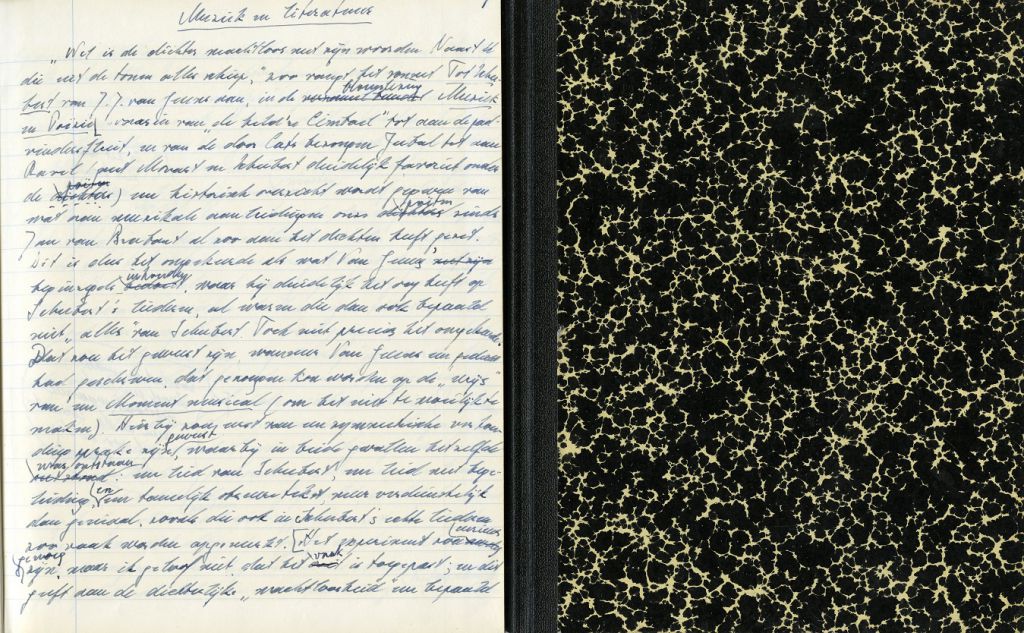 Muziek en literatuur
1
„Wel is de dichter machtloos met zijn woorden Naast U
die uit de tonen alles schiep," zoo vangt het sonnet Tot Schu-
bert van J. J. van Geuns aan, in de bloemlezing Muziek
en Poëzie, waarin van „de held're Cimbael" tot aan de pad-
vindersfluit, en van de door Cats bezongen Jubal tot aan
Ravel (met Mozart en Schubert duidelijk favoriet onder
de poëten) een historisch overzicht wordt gegeven van
wat aan muzikale aandriften onze poëten sinds
Jan van Brabant al zoo aan het dichten heeft gezet.
Dit is dus het omgekeerde als wat Van Geuns'
beginregels, waar hij duidelijk het oog heeft op
Schubert's liederen, al waren die dan ook bepaald
niet „alles" van Schubert. Toch niet precies het omgekeerde.
Dat zou het geweest zijn, wanneer Van Geuns een gedicht
had geschreven, dat gezongen kon worden op de „wijs"
van een Moment musical (om het niet te moeilijk te
maken). Hierbij zou wat van een symmetrische verhou-
ding sprake zijn geweest, waarbij in beide gevallen hetzelfde
was ontstaan: een lied van Schubert, een lied met bege-
leiding, en een tamelijk obscure tekst meer verdienstelijk
dan geniaal, zooals die ook in Schubert's echte liederen
zoo vaak worden opgemerkt. Het experiment
genoeg
zijn, maar ik geloof niet dat het vaak is toegepast; en dit
geeft aan de dichterlijke „machtloosheid" een bepaald